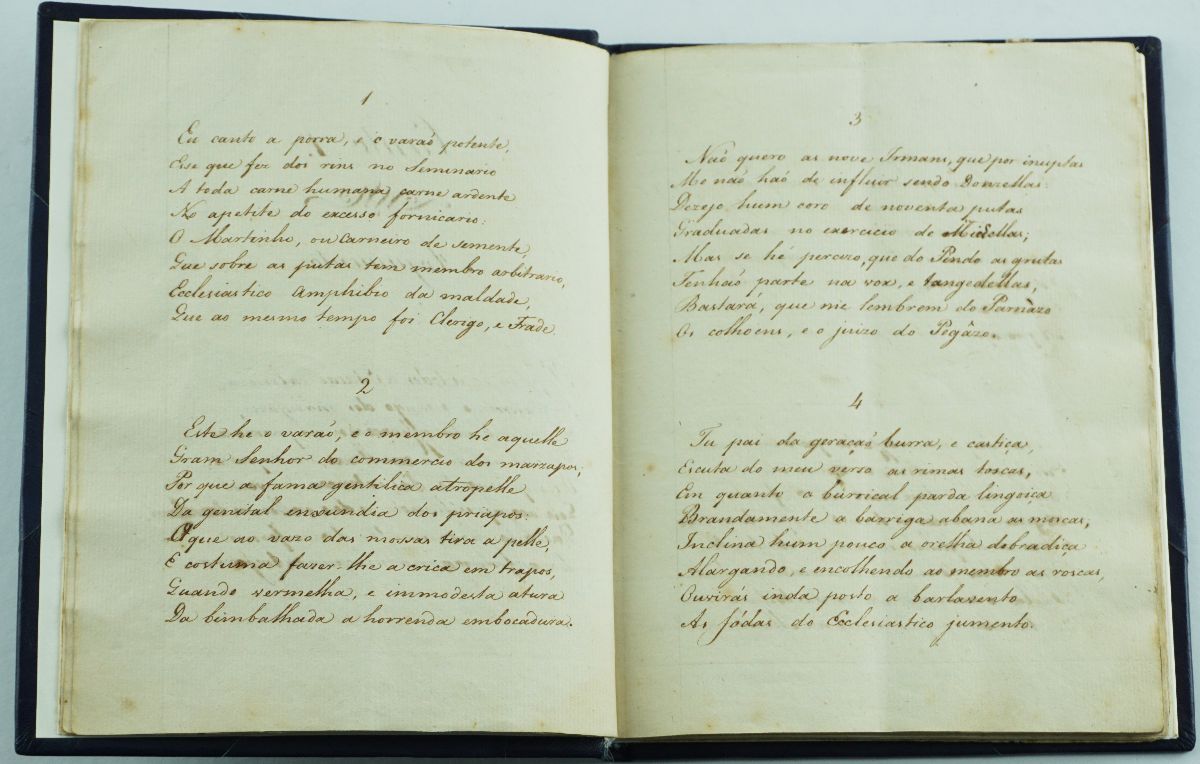 1
Eu canto a porra, e o varaõ potente,
Esse que fez dos rins no Seminario
A toda carne humana carne ardente
No apetite do excesso fornicario:
O Martinho, ou Carneiro de semente,
Que sobre as putas tem membro arbitrario,
Ecclesiastico Amphibio da maldade,
Que ao mesmo tempo foi Clerigo, e Frade.
2
Este he o varaõ, e o membro he aquelle
Gram Senhor do commercio dos marzapos,
Por que a fama gentilica atropelle
Da genital enxundia dos priapos:
O que ao vazo das mossas tira a pelle,
E costuma fazer-lhe a crica em trapos,
Quando vermelha, e immodesta atura
Da bimbalhada a horrenda embocadura.
3
Naõ quero as nove Irmans, que por inuptas
Me naõ haõ de influir sendo Donzellas:
Dezejo hum coro de noventa putas
Graduadas no exercicio de Michellas;
Mas se hé percizo, que do Pindo as grutas
Tenhaõ parte na voz, e bangedellas,
Bastará, que me lembrem do Parnàzo
Os colhoens, e o juizo do Pegâzo.
4
Tu pai da geraçaõ burra, e castiça,
Escuta do meu verso as rimas toscas,
Em quanto a burrical parda lingoiça
Brandamente a barriga abana as moscas,
Inclina hum pouco a orelha debradiça
Alargando, e encolhendo ao membro as roscas,
Ouvirás inda posto a barlavento
As fódas do Ecclesiastico jumento.